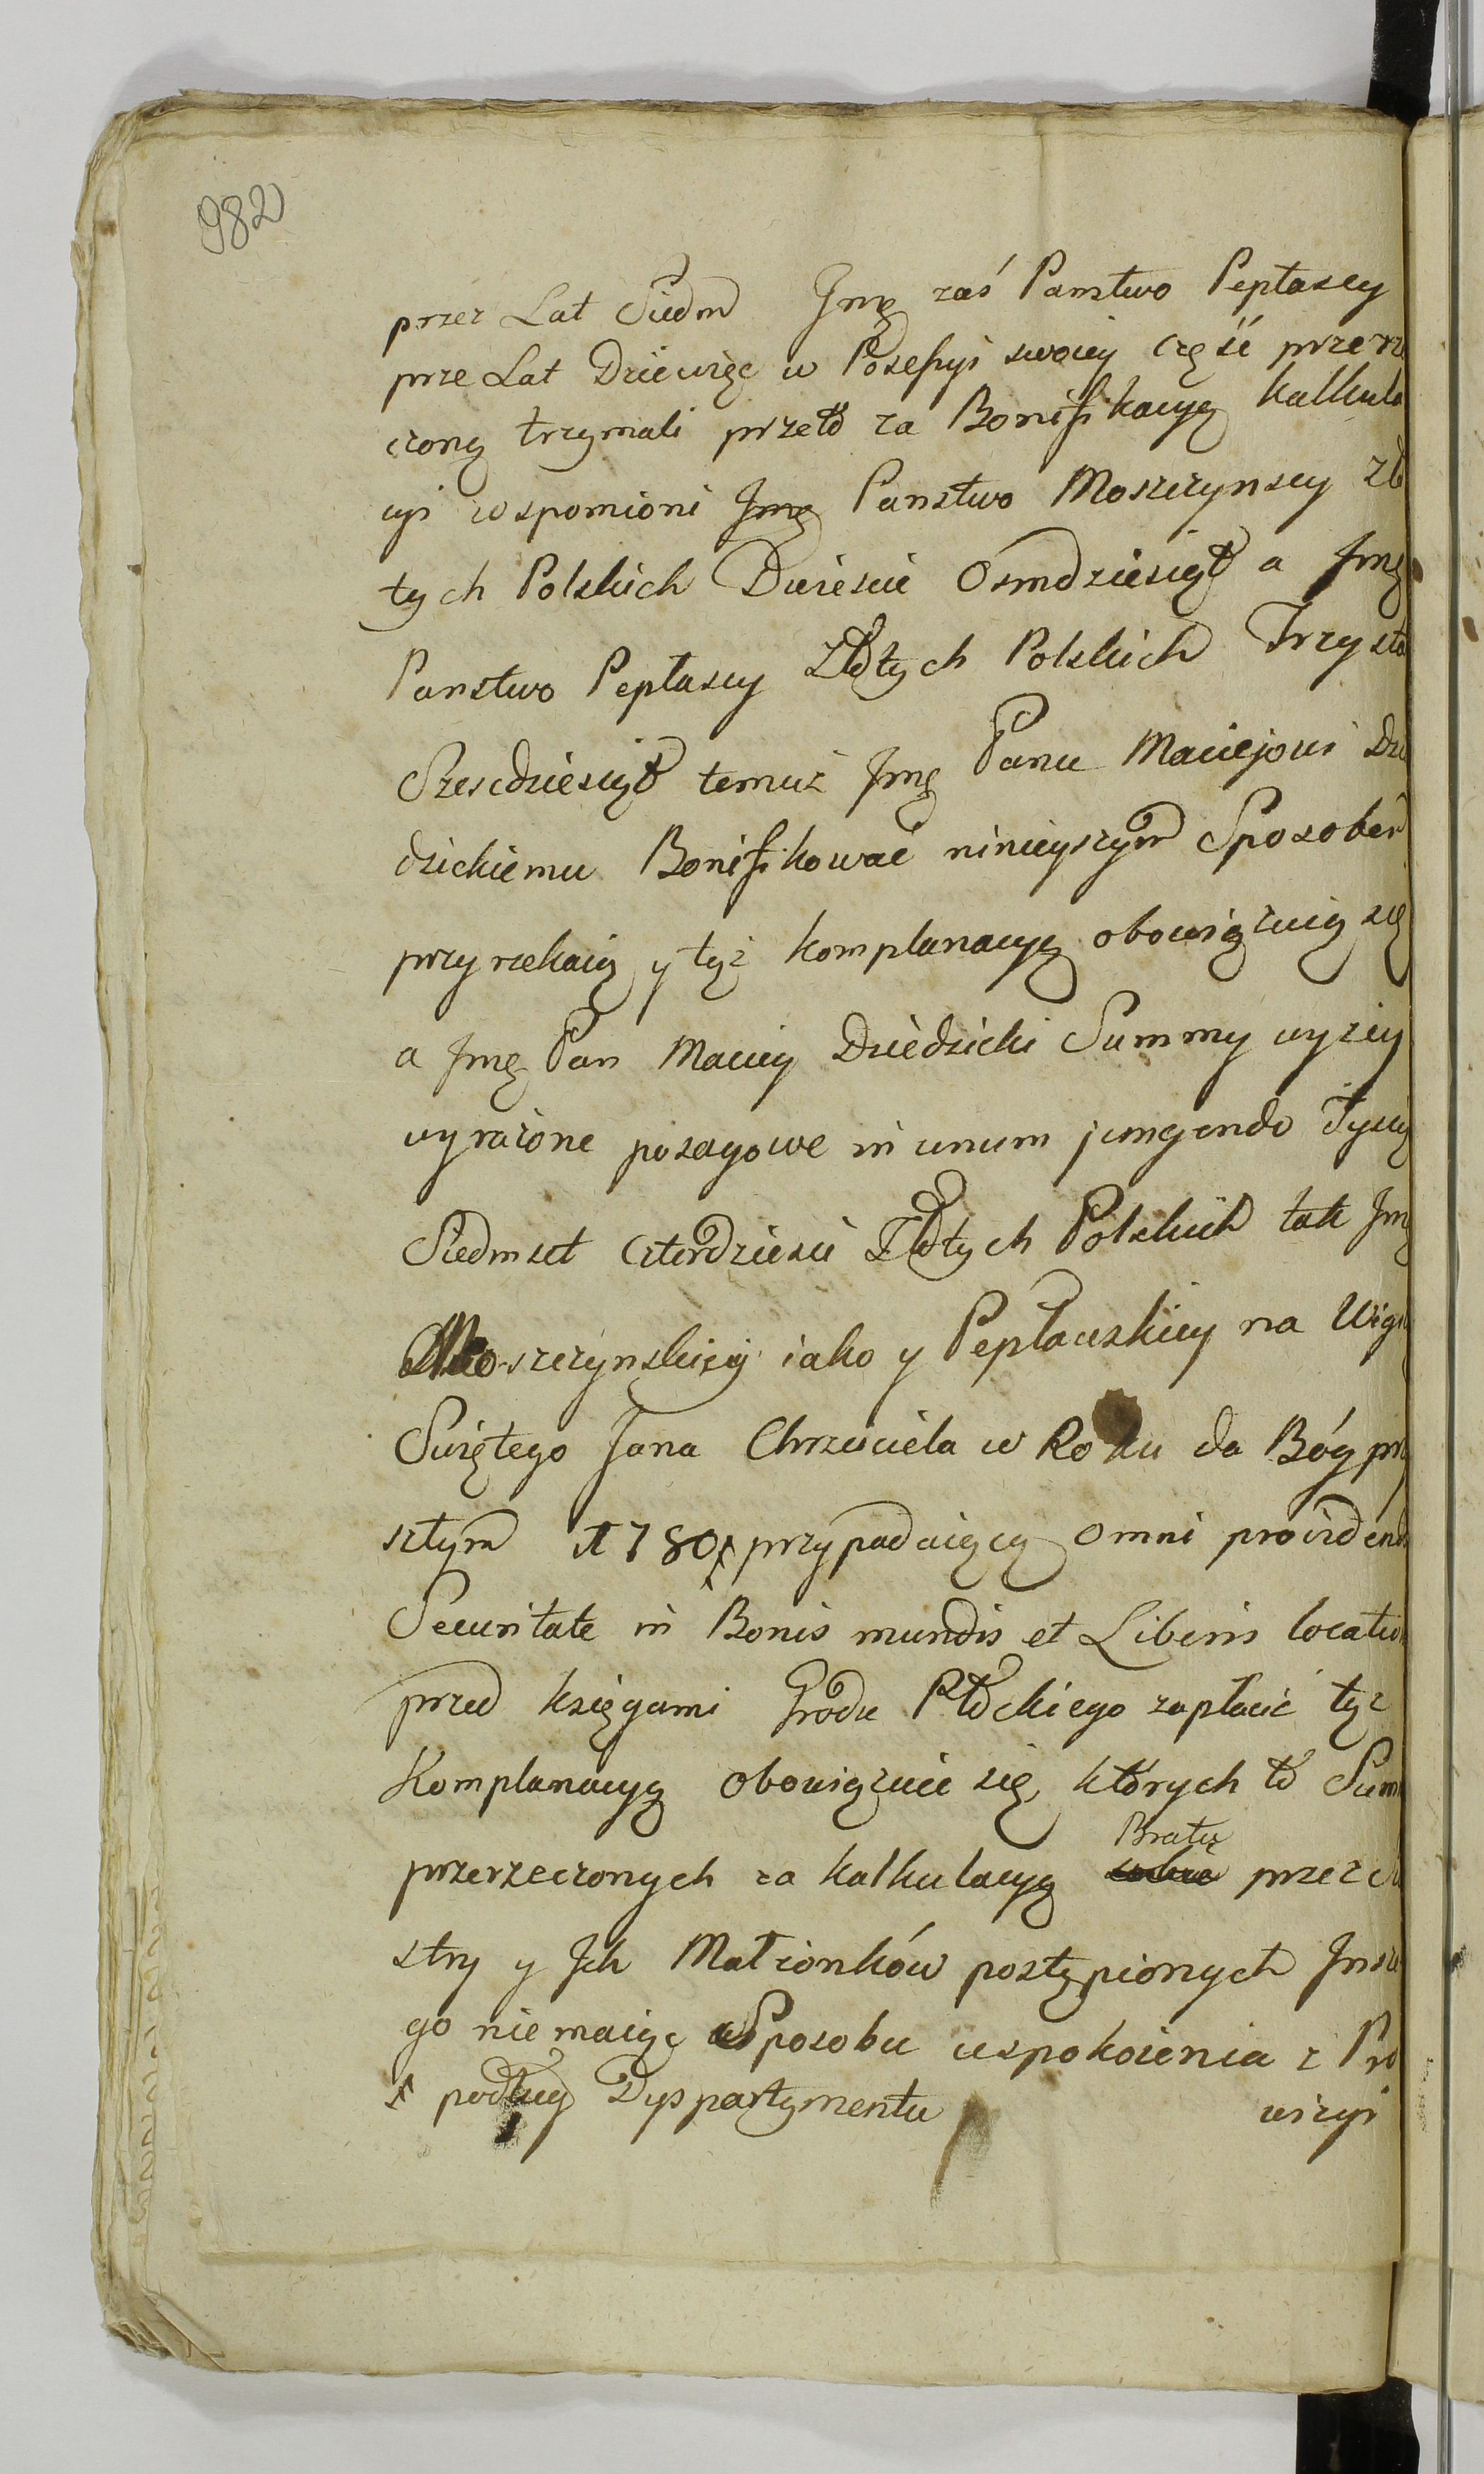 982
przez Lat Siedm Jmę zaś Panstwo Peptascy
prze Lat Dziewięc w Posessyi swoiey część przerze
czoną trzymali przeto za Bonifikacyą kalkula
cyi wspomioni Jmę Panstwo Moszczynscy zło
tych Polskich Dwiescie Osmdziesiąt a Jmę
Panstwo Peptascy Złotych Polskich Trzysta
Szescdziesiąt temuż Jmę Panu Maciejowi Dzie
dzickiemu Bonifikować ninieyszym Sposobem
przyrzekaią y tyż komplanacyą obowiązuią się
a Jmę Pan Maciey Dziedzicki Summy wyżey
wyrażone posagowe in unum jungendo Tysiąc
Siedmset czterdziesci Złotych Polskich tak Jmę
Moszczynskiey iako y Pepłauskiey na Wigi
Swiętego Jana Chrzciciela w Roku da Bóg przy
szłym 1780 x przypadaiącą omni providend
Securitate in Bonis mundis et Liberis locatio
przed księgami Grodu Płockiego zapłacić tyż
Komplanacyą obowiązuie się, których to Sum
przerzeczonych za kalkulacyą Bratu przez si
stry y Jch Małżonków postąpionych Jnsze
go nie maiąc Sposobu uspokoienia z Pro
x podług Dyspartymentu
wizyi